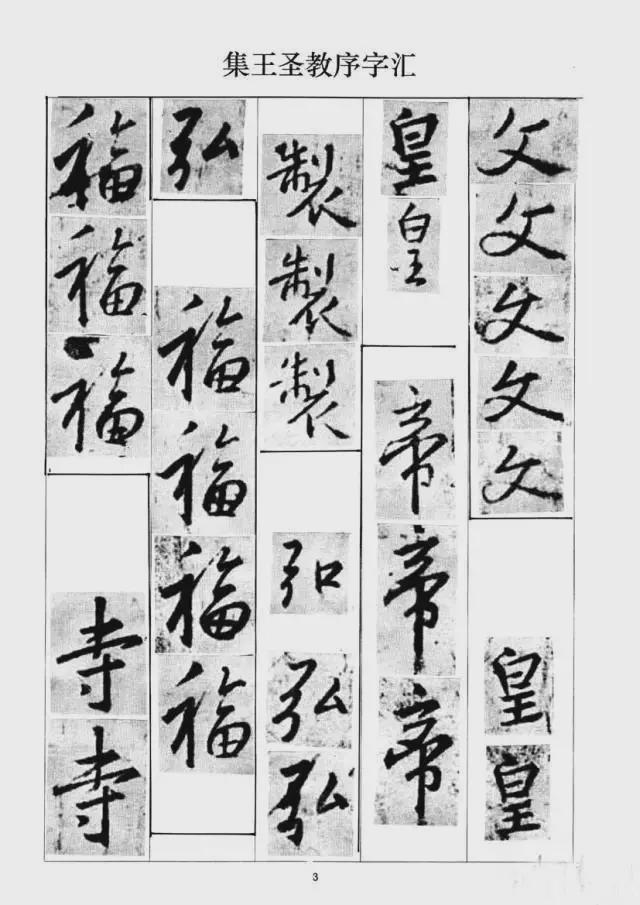 集王圣教序字汇
文文文文文皇皇
皇皇帝帝帝
製製製弘弘弘
弘福福福福
福福福寺寺
3